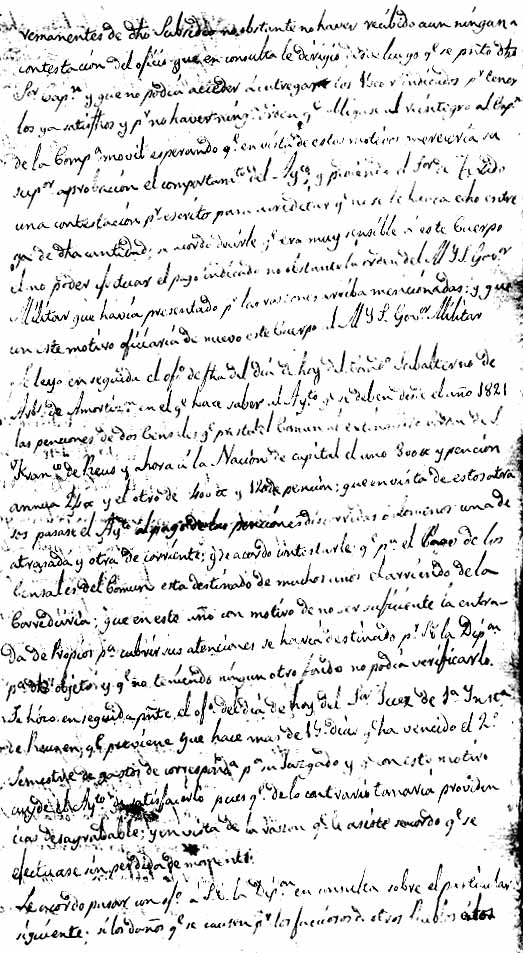 remanentes de dho Subsidio no obstante no haver recibido aun ninguna
contestación del oficio que en consulta le dirigio desde luego qe se prto dho
Sor Capn y que no podia acceder á entregar los indicados pr tener
los ya satisfhos y pr no haver ning orden qe obligase al reintegro al Capn
de la Compa movil esperando qe en vista de estos motivos mereceria su
supor aprobación el comportamto del Ayto y pidiendo el Sor de Tirado
una contestación pr escrito para acreditar qe no se le havia echo entre
ga de dha cantidad; se acordó decirle qe era muy sensible á este Cuerpo
el no poder efectuar el pago indicado no obstante la orden del M Y S. Govor
Militar que havia presentado pr las rasones arriba mencionadas; y que
con este motivo oficiaria de nuevo este Cuerpo al M Y S. Govor Militar
Se leyo en seguida el ofo de fha del dia de hoy del Subalterno de
de Amortizn en el qe hace saber al Ayto qe se deben desde el año 1821
las penciones de dos Censales qe prestaba el Comun al extinguido orden de S.
Franco de Reus y ahora á la Nación de capital el uno 800 y pención
annua 24 y el otro de 400 y 12 de pención; que en vista de estos atra
sos pasase el Ayto al pago de las penciones discurridas o á lo menos una de
atrasada y otra de corriente; y se acordo contestarle qe pa el Pago de los
Censales del Comun esta destinado de muchos años el arriendo de la
Correduria; que en este año con motivo de no ser suficiente la entra-
da de Propios pa cubrir sus atenciones se havia destinado pr S.E. la Dipon
pa dhos objetos y qe no teniendo ningun otro fondo no podia verificarlo.
Se hizo en seguida pnte el ofo del dia de hoy del Sor Juez de 1a Insta
de Reus en qe previene que hace mas de 15 dias qe ha vencido el 2o
Semestre de gastos de correspa pa su Juzgado y qe con este motivo
cuyde el Ayto de satisfacerlo pues qe de lo contrario tomaria providen
cias desagradables; y en vista de la rason qe le asiste se acordo qe se
efectuase sin perdida de momento.
Se acordo pasar un ofo a S.E. la Dipon en consulta sobre el particular
siguiente; si los daños qe se causen pr los facciosos de otros Pueblos á los